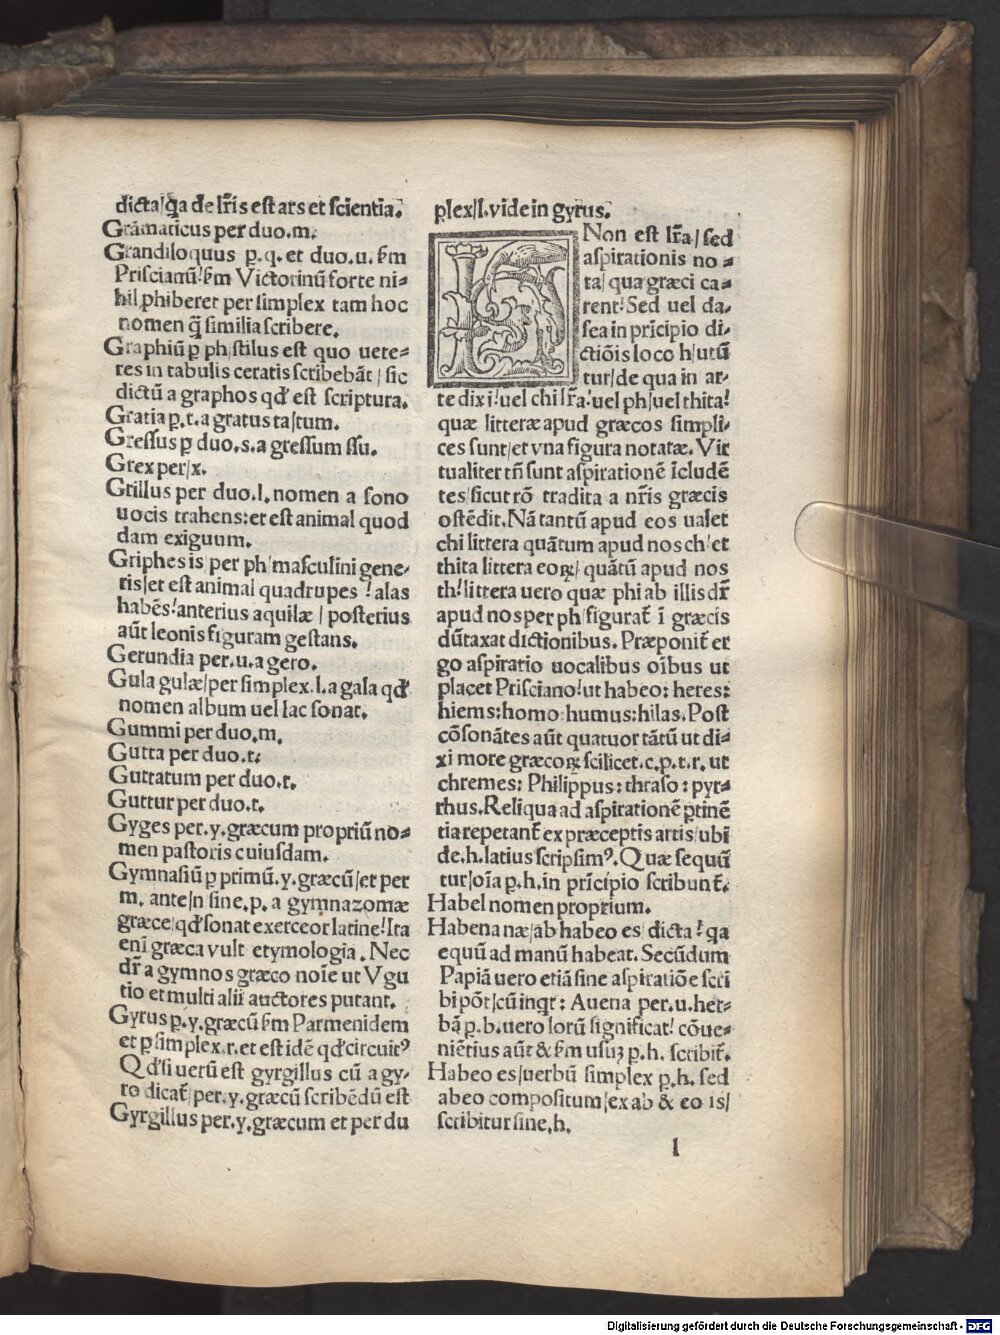 dicta/q̃a de lr̃is est ars et scientia.
Grãmaticus per duo.m.
Grandiloquus p̱.q. et duo.u. ẜm
Priscianũ!ẜm Victorinũ forte ni=
hil ꝓhiberet per simplex tam hoc
nomen q̃ similia scribere.
Graphiũ p̱ ph/stilus est quo uete=
res in tabulis ceratis scribebãt / sic
dictũ a graphos qđ est scriptura.
Gratia p̱.t.a gratus ta/tum.
Gressus p̱ duo.s.a gressum ssu.
Grex per/x.
Grillus per duo.l. nomen a sono
uocis trahens:et est animal quod
dam exiguum.
Griphes is/per ph/masculini gene-
ris/et est animal quadrupes ! alas
habẽs!anterius aquilæ / posterius
aũt leonis figuram gestans.
Gerundia per.u.a gero.
Gula gulæ/per simplex.l.a gala qđ
nomen album uel lac sonat.
Gummi per duo.m.
Gutta per duo.t.
Guttatum per duo.t.
Guttur per duo.t.
Gyges per.y.græcum propriũ no=
men pastoris cuiusdam.
Gymnasiũ p̱ primũ.y.græcũ/et per
m. ante/n sine.p. a gymnazomæ
græce/qđ sonat exerceor latine!Ita
eni græca vult etymologia. Nec
dr̃ a gymnos græco noĩe ut Vgu
tio et multi alii auctores putant.
Gyrus p̱.y.græcũ ẜm Parmenidem
et p̱ simplex.r.et est idẽ qđ circuitꝰ
Qđ si uerũ est gyrgillus cũ a gy-
ro dicat̃/per.y.græcũ scribẽdũ est
Gyrgillus per.y.græcum et per du
plex/l.vide in gyrus.
H Non est lr̃a/sed
aspirationis no =
ta/qua græci ca=
rent!Sed uel da-
sea in pricipio di-
ctiõis loco h/utũ
tur/de qua in ar-
te dixi!uel chi lr̃a!uel ph/uel thita!
quæ litteræ apud græcos simpli-
ces sunt/et vna figura notatæ. Vir
tualiter tñ sunt aspirationẽ ĩcludẽ
tes/sicut rõ tradita a nr̃is græcis
ostẽdit. Nã tantũ apud eos ualet
chi littera quãtum apud nos ch!et
thita littera eoꝝ/ quãtũ apud nos
th!littera uero quæ phi ab illis dr̃
apud nos per ph/figurat̃ ĩ græcis
dũtaxat dictionibus. Præponit̃ er
go aspiratio uocalibus oĩbus ut
placet Prisciano!ut habeo: heres:
hiems:homo:humus:hilas. Post
cõsonãtes aũt quatuor tãtũ ut di=
xi more græcoꝝ scilicet.c.p.t.r. ut
chremes: Philippus: thraso: pyr=
rhus. Reliqua ad aspirationẽ ꝑtinẽ
tia repetant̃ ex præceptis artis/ubi
de.h.latius scripsimꝰ. Quæ sequũ
tur/oĩa p̱.h.in prĩcipio scribunt̃.
Habel nomen proprium.
Habena næ/ab habeo es/ dicta ! q̃a
equũ ad manũ habeat. Secũdum
Papiã uero etiã sine aspiratiõe scri
bi põt/cũ inqt: Auena per.u.her=
bã p̱.b.uero lorũ significat! cõue=
niẽtius aũt & ẜm usuꝫ p̱.h. scribit̃.
Habeo es/uerbũ simplex p̱.h. sed
abeo compositum/ex ab & eo is/
scribitur sine.h.
l
Digitalisierung gefördert durch die Deutsche Forschungsgemeinschaft - DFG